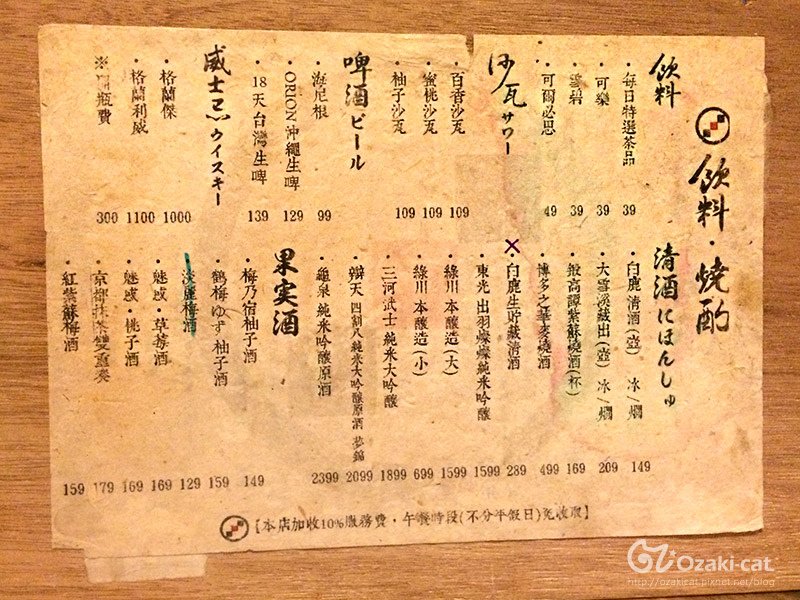 飲料・燒酌
飲料
・每日特選茶品 39
・可樂 39
・雪碧 39
・可爾必思 49
沙瓦サワー
・百香沙瓦 109
・蜜桃沙瓦 109
・柚子沙瓦 109
啤酒ビール
・海尼根 99
・ORION沖繩生啤 129
・18天台灣生啤 139
威士忌ウイスキー
・格蘭傑 1000
・格蘭利威 1100
※開瓶費 300
清酒にほんしゅ
・白鹿清酒(壺) 冰/燗 149
・大雪溪藏出(壺) 冰/燗 209
・鍛高譚紫蘇燒酒(杯) 169
・博多之華麥燒酒 499
・白鹿生貯藏清酒 289
・東光 出羽燦燦純米吟釀 1599
・綠川 本釀造(大) 1599
・綠川 本釀造(小) 699
・三河武士 純米大吟釀 1899
・辯天 四割八純米大吟釀原酒 夢錦 2099
・龜泉 純米吟釀原酒 2399
果実酒
・梅乃宿柚子酒 149
・鶴梅ゆず柚子酒 159
・淡麗梅酒 129
・魅惑・草莓酒 169
・魅惑・桃子酒 169
・京都抹茶雙重奏 179
・紅紫蘇梅酒 159
【本店加收10%服務費・午餐時段(不分平假日)免收取】
Ozaki-cat
http://ozakicat.pixnet.net/blog